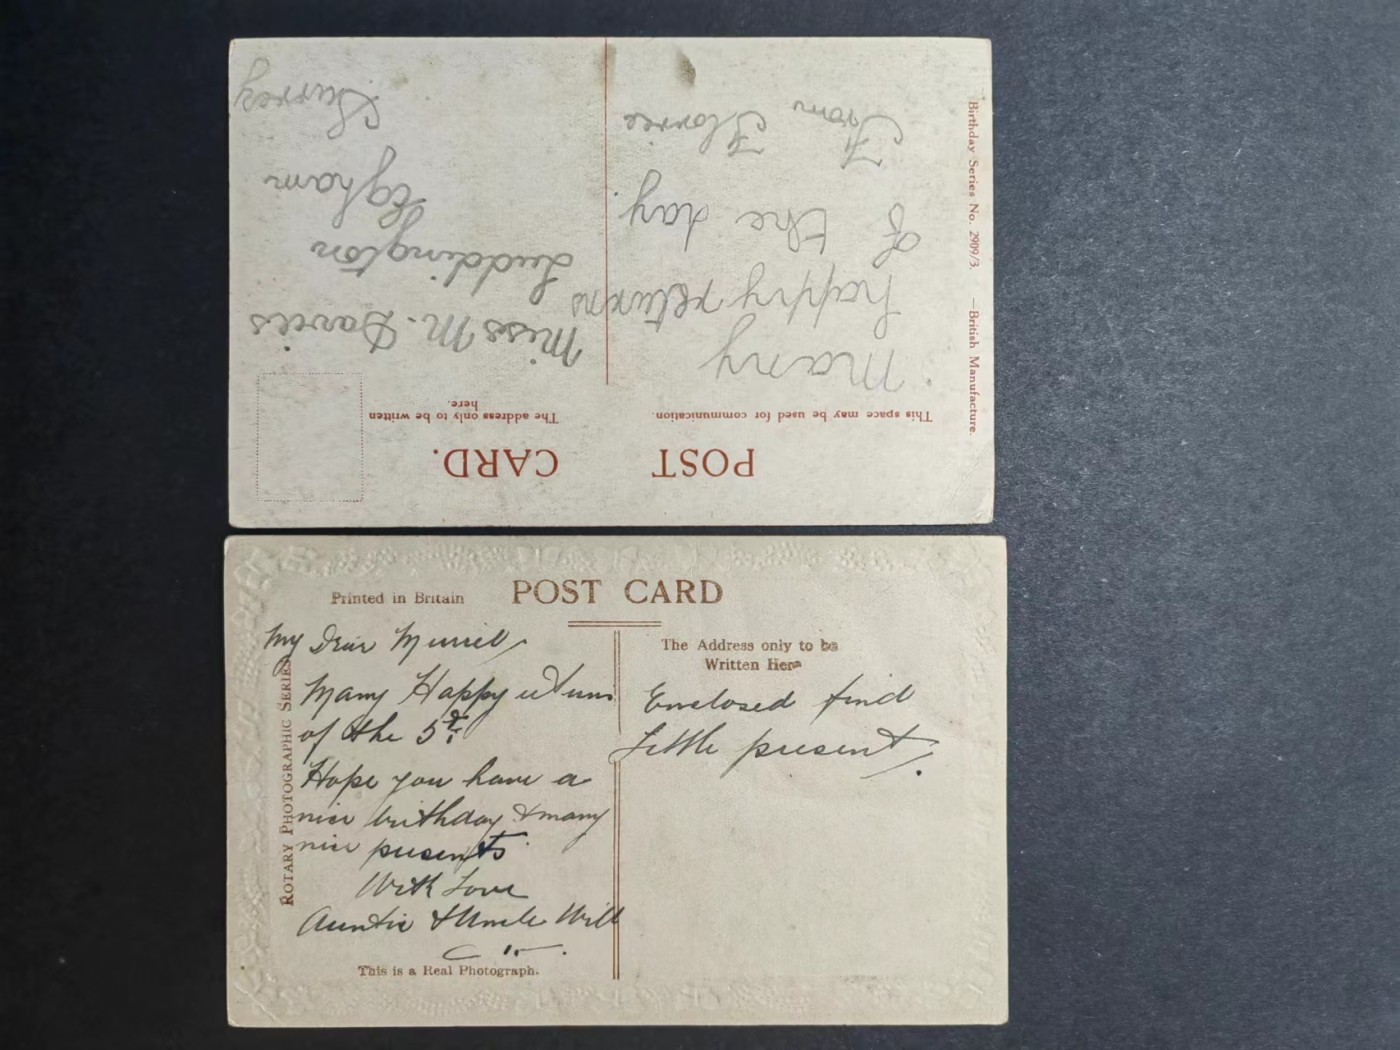 POST CARD.
This space may be used for communication.
The address only to be written
here.
Many
happy returns
of the day.
From Florrie
Miss M. Davies
Luddington
Egham
Surrey
Birthday Series No. 2909/3. —British Manufacture.
Printed in Britain
POST CARD
ROTARY PHOTOGRAPHIC SERIES
My Dear Muriel,
Many Happy returns
of the 5th
Hope you have a
nice birthday & many
nice presents
With Love
Auntie & Uncle Will
This is a Real Photograph.
The Address only to be
Written Here
Enclosed find
Little present.